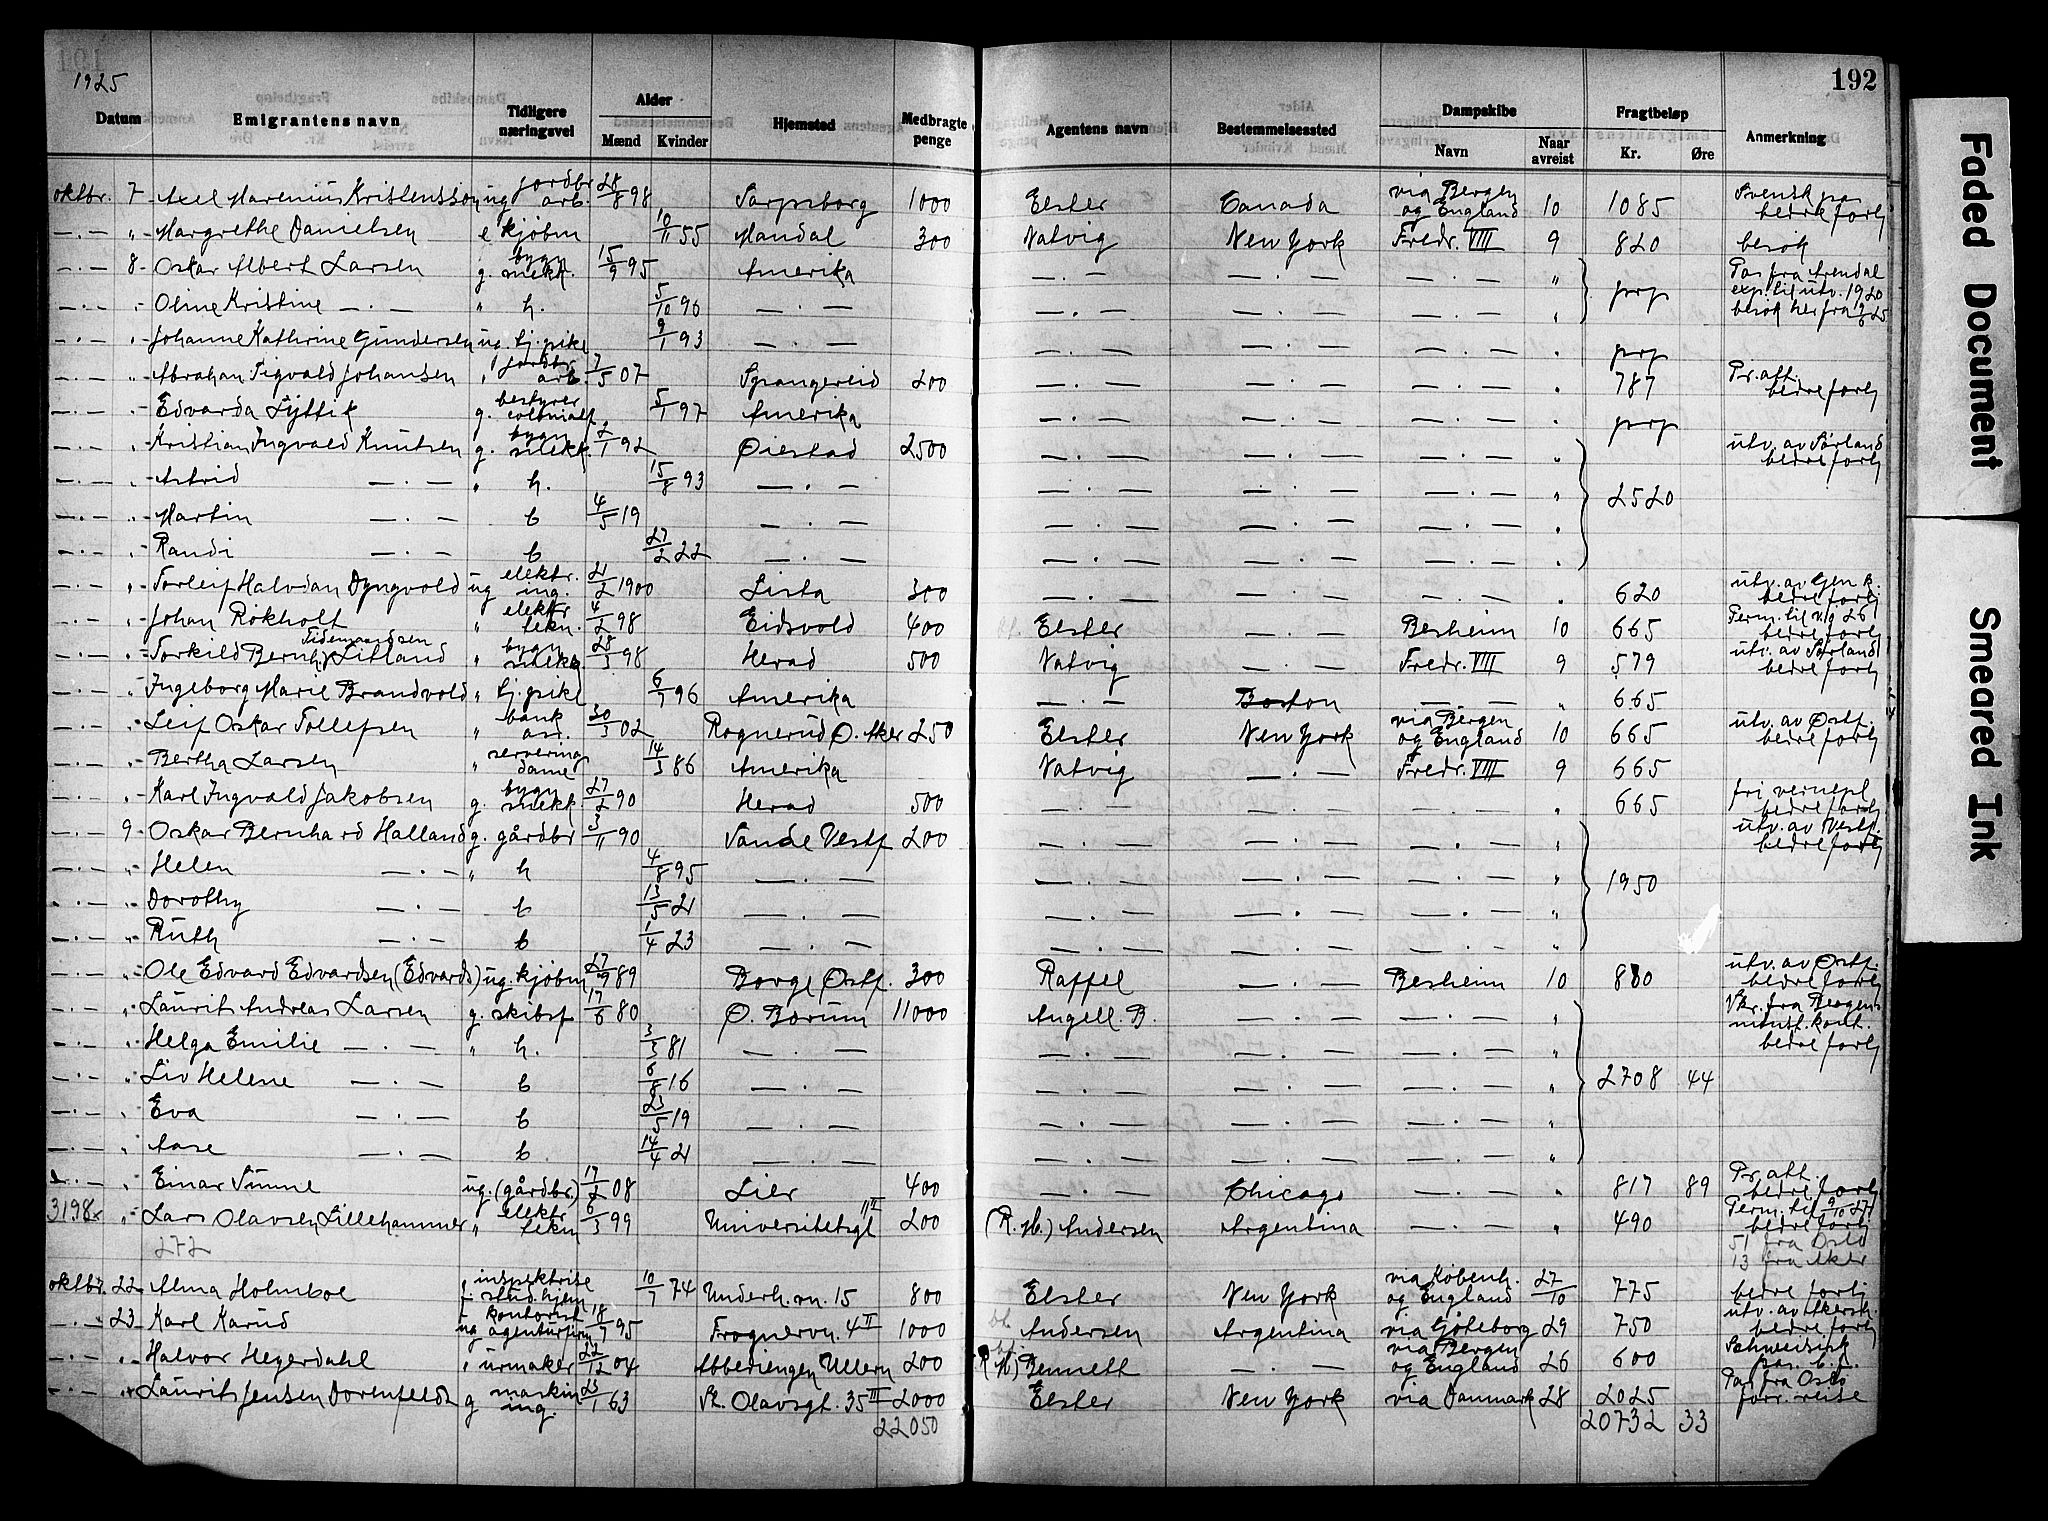 1925
192
Datum Emigrantens navn Tidligere næringsvei Alder Mænd Kvinder Hjemsted Medbragte penge Agentens navn Bestemmelsessted Dampskibe Navn Naar avreist Fragtbeløp Kr. Øre Anmerkning
oktbr. 7 Axel Marenius Kristenssen ug jordbr. arb. 28/8 98 Sarpsborg 1000 Elster Canada via Bergen og England 10 1085 Svensk pas bedre forhj
—.— " Margrethe Danielsen e kjøbm 10/11 55 Mandal 300 Natvig New York Fredr. VIII 9 820 besøk
—.— 8 Oskar Albert Larsen g. bygn snekk. 15/9 95 Amerika —.— —.— —.— " prp Pas fra Arendal exp. til utv. 1920 besøk her fra
—.— " Oline Kristine —.— " h. 5/10 96 —.— —.— —.— —.— "
—.— " Johanne Kathrine Gundersen ug. tj.pike 9/1 93 —.— —.— —.— —.— " prp
—.— " Abrahan Sigvald Johansen " jordbr arb. 7/5 07 Spangereid 200 —.— —.— —.— " 787 Pr.att. bedre forhj
—.— " Edvarda Lyttik g. bestyrer colonialf 5/1 97 Amerika —.— —.— —.— " prp
—.— " Kristian Ingvald Knutsen g. bygn snekk. 2/1 92 Øiestad 2500 —.— —.— —.— " utv. av Sørland bedre forhj
—.— " Astrid —.— " h. 15/8 93 —.— —.— —.— —.— " 2520
—.— " Martin —.— b 4/5 19 —.— —.— —.— —.— "
—.— " Randi —.— b 27/2 22 —.— —.— —.— —.— "
—.— " Torleif Halvdan Dyngvold ug elektr. ing. 21/2 1900 Lista 300 —.— —.— —.— " 620 utv. av Gen k. bedre forhj
—.— " Johan Rökholt " elektr tekn. 4/2 98 Eidsvold 400 Elster —.— Besheim 10 665 Perm. til bedre forhj
—.— " Torkild Bernh. Tidemandsen Litland " bygn snekk 28/3 98 Herad 500 Natvig —.— Fredr. VIII 9 579 utv. av Sørland bedre forhj
—.— " Ingeborg Marie Brandvold " tj.pike 6/7 96 Amerika —.— Boston —.— " 665
—.— " Leif Oskar Tollefsen " bank ass. 30/3 02 Rognerud Ø. Aker 250 Elster New York via Bergen og England 10 665 utv. av Østf. bedre forhj
—.— " Bertha Larsen " serverings dame 14/3 86 Amerika Natvig —.— Fredr. VIII 9 665
—.— " Karl Ingvald Jakobsen g. bygn snekk 27/2 90 Herad 500 —.— —.— —.— " 665 fri vernepl bedre forhj
—.— 9 Oskar Bernhard Halland g. gårdbr 3/11 90 Sande Vestf 200 —.— —.— —.— " utv. av Vestf. bedre forhj
—.— " Helen —.— " h 4/8 95 —.— —.— —.— —.— " 1950
—.— " Dorothy —.— b 13/5 21 —.— —.— —.— —.— "
—.— " Ruth —.— b 1/4 23 —.— —.— —.— —.— "
—.— " Ole Edvard Edvardsen (Edvards) ug. kjøbm 27/9 89 Borge Østf. 300 Raffel —.— Besheim 10 880 utv. av Østf. bedre forhj
—.— " Laurits Andreas Larsen g. skibsf 17/6 80 Ø. Bærum 11000 Angell. B. —.— —.— " Vkr. fra Bergens mønst. kont. bedre forhj
—.— " Helga Emilie —.— " h. 3/3 81 —.— —.— —.— —.— "
—.— " Liv Helene —.— b 6/8 16 —.— —.— —.— —.— " 2708 44
—.— " Eva —.— b 23/5 19 —.— —.— —.— —.— "
—.— " Aase —.— b. 14/4 21 —.— —.— —.— —.— "
—.— " Einar Simne ug. (gårdbr.) 17/2 08 Lier 400 —.— Chicago —.— " 817 89 Pr. att. bedre forhj
3198x " Lars Olavsen Lillehammer " elektr tekn 6/3 99 Universitetsgt 11 II 200 (R. Nb.) Andersen Argentina —.— " 490 Perm. til 9/10 27 bedre forhj
272 51 fra Oslo
13 fra Aker
oktbr. 22 Alma Holmboe " inspektrise f. stud.hjem 10/7 74 Underh. vn. 15 800 Elster New York via Københ. og England 27/10 775 bedre forhj
—.— 23 Karl Karud ug kontorist agenturfirm 18/7 95 Frognervn. 4 II 1000 Andersen Argentina via Göteborg 29 750 utv. av Akersh. bedre forhj
—.— " Halvor Hegerdahl " urmaker 22/12 04 Abbediengen Ullern 200 Bennett —.— via Bergen og England 26 600 Schweizisk pas. b.f.
—.— " Laurits Jensen Dorenfeldt g maskin ing. 23/1 63 St. Olavsgt. 35 III 2000 Elster New York via Danmark 28 2025 Pas fra Oslo forr. reise
22050 20732 33
Faded Document
Smeared Ink